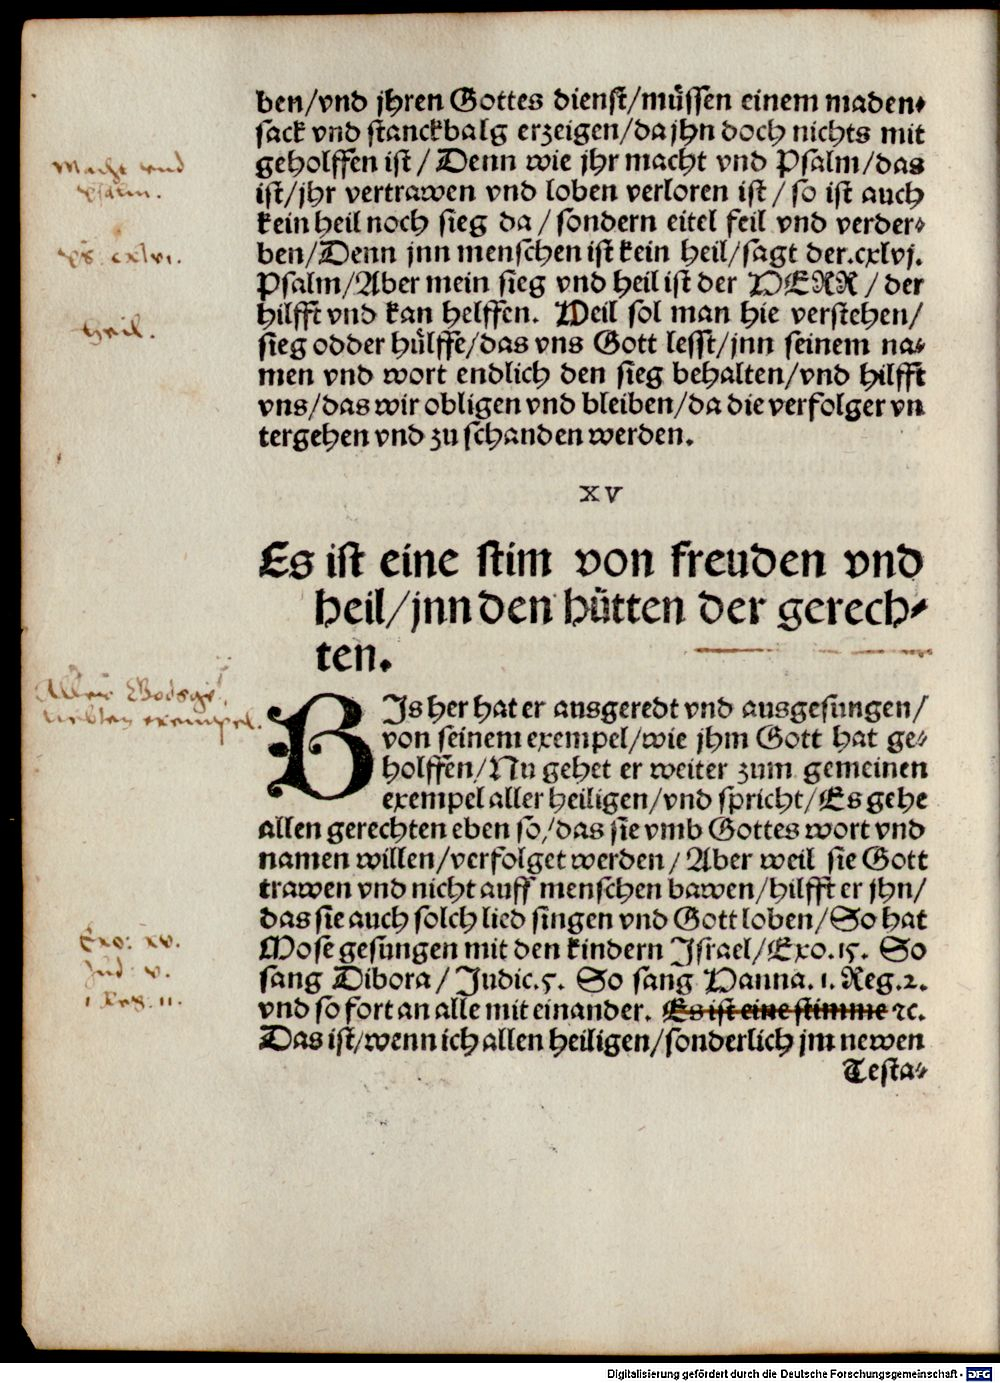 ben/vnd jhren Gottes dienst/müssen einem maden-
sack vnd stanckbalg erzeigen/da jhn doch nichts mit
geholffen ist/Denn wie jhr macht vnd Psalm/das
ist/jhr vertrawen vnd loben verloren ist/so ist auch
kein heil noch sieg da/sondern eitel feil vnd verder-
ben/Denn jnn menschen ist kein heil/sagt der.cxlvj.
Psalm/Aber mein sieg vnd heil ist der HERR/der
hilfft vnd kan helffen. Heil sol man hie verstehen/
sieg odder hülffe/das vns Gott lesst/jnn seinem na-
men vnd wort endlich den sieg behalten/vnd hilfft
vns/das wir obligen vnd bleiben/da die verfolger vn
tergehen vnd zu schanden werden.
Macht vnd
psalm.
ps. cxlvi.
Heil.
XV
Es ist eine stim von freuden vnd
heil/jnn den hütten der gerech-
ten.
Aller
exempel.
BIs her hat er ausgeredt vnd ausgesungen/
von seinem exempel/wie jhm Gott hat ge-
holffen/Nu gehet er weiter zum gemeinen
exempel aller heiligen/vnd spricht/Es gehe
allen gerechten eben so/das sie vmb Gottes wort vnd
namen willen/verfolget werden/Aber weil sie Gott
trawen vnd nicht auff menschen bawen/hilfft er jhn/
das sie auch solch lied singen vnd Gott loben/So hat
Mose gesungen mit den kindern Jsrael/Exo.15. So
sang Dibora/Judic.5. So sang Hanna.1.Reg.2.
vnd so fort an alle mit einander. Es ist eine stimme ꝛc.
Das ist/wenn ich allen heiligen/sonderlich jm newen
Testa-
Exo: xv.
Jud: v.
1 Reg: 11.
Digitalisierung gefördert durch die Deutsche Forschungsgemeinschaft - DFG